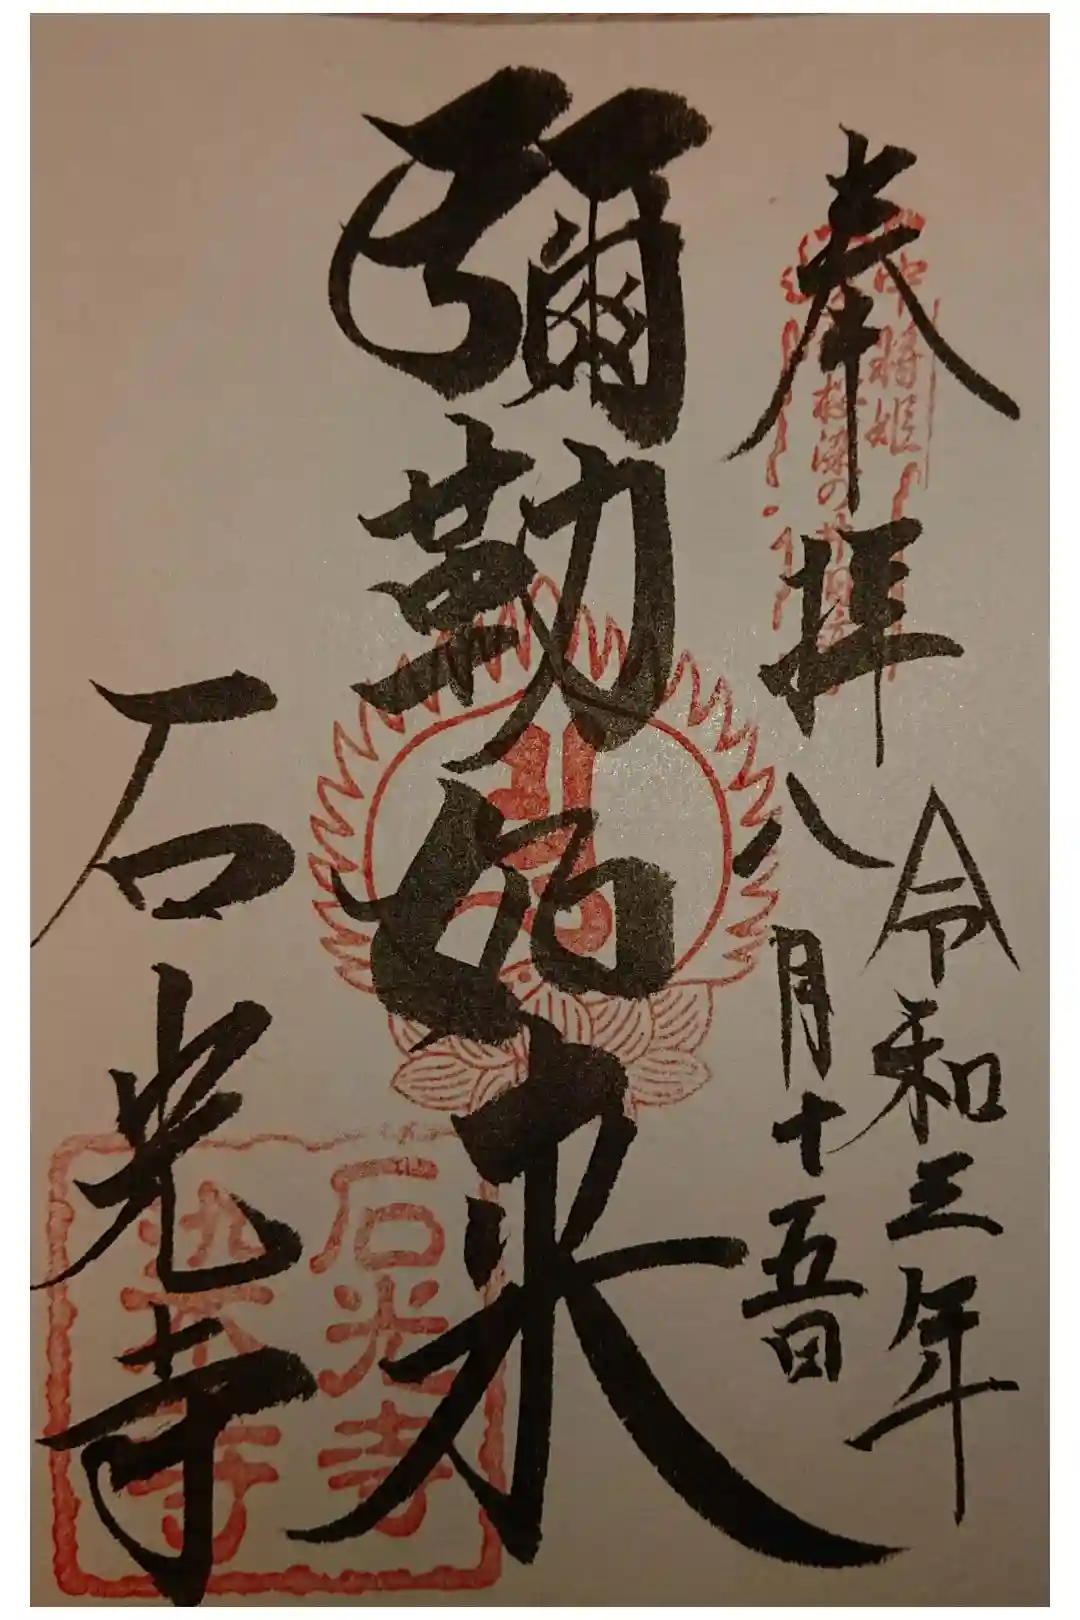 奉拝
令和三年
八月十五日
彌勒如来
石光寺
中将姫
桜染の井
石光寺
染寺